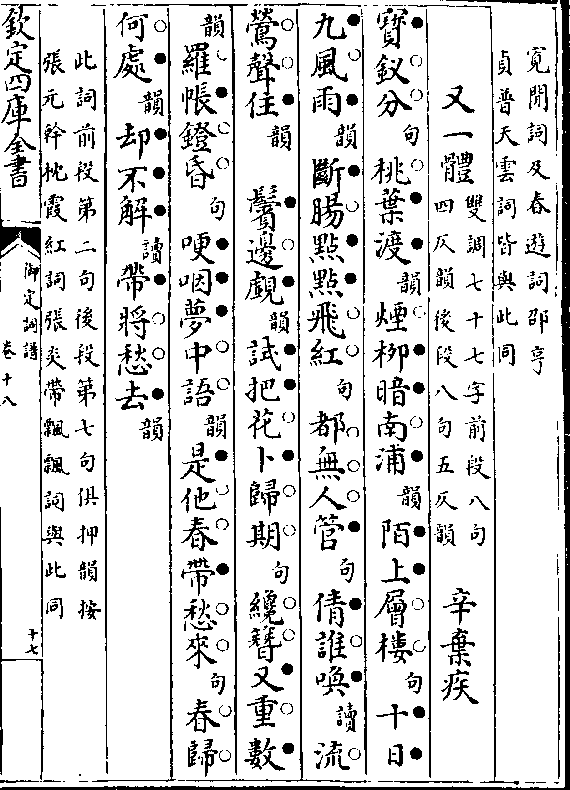 寛閒詞及春遊詞邵亨
貞普天雲詞皆與此同
又一體 雙調七十七字前段八句
四仄韻後段八句五仄韻 辛棄疾
寶釵分句桃葉渡韻煙柳暗南浦韻陌上層樓句十日
九風雨韻斷腸點點飛紅句都無人管句倩誰喚讀流
鶯聲住韻 鬢邊覷韻試把花卜歸期句纔簪又重數
韻羅帳鐙昏句哽咽夢中語韻是他春帶愁來句春歸
何處韻却不解讀帶將愁去韻
此詞前段第二句後段第七句俱押韻按
張元幹枕霞紅詞張炎帶飄飄詞與此同
欽定四庫全書
御定詞譜
卷十八
十七